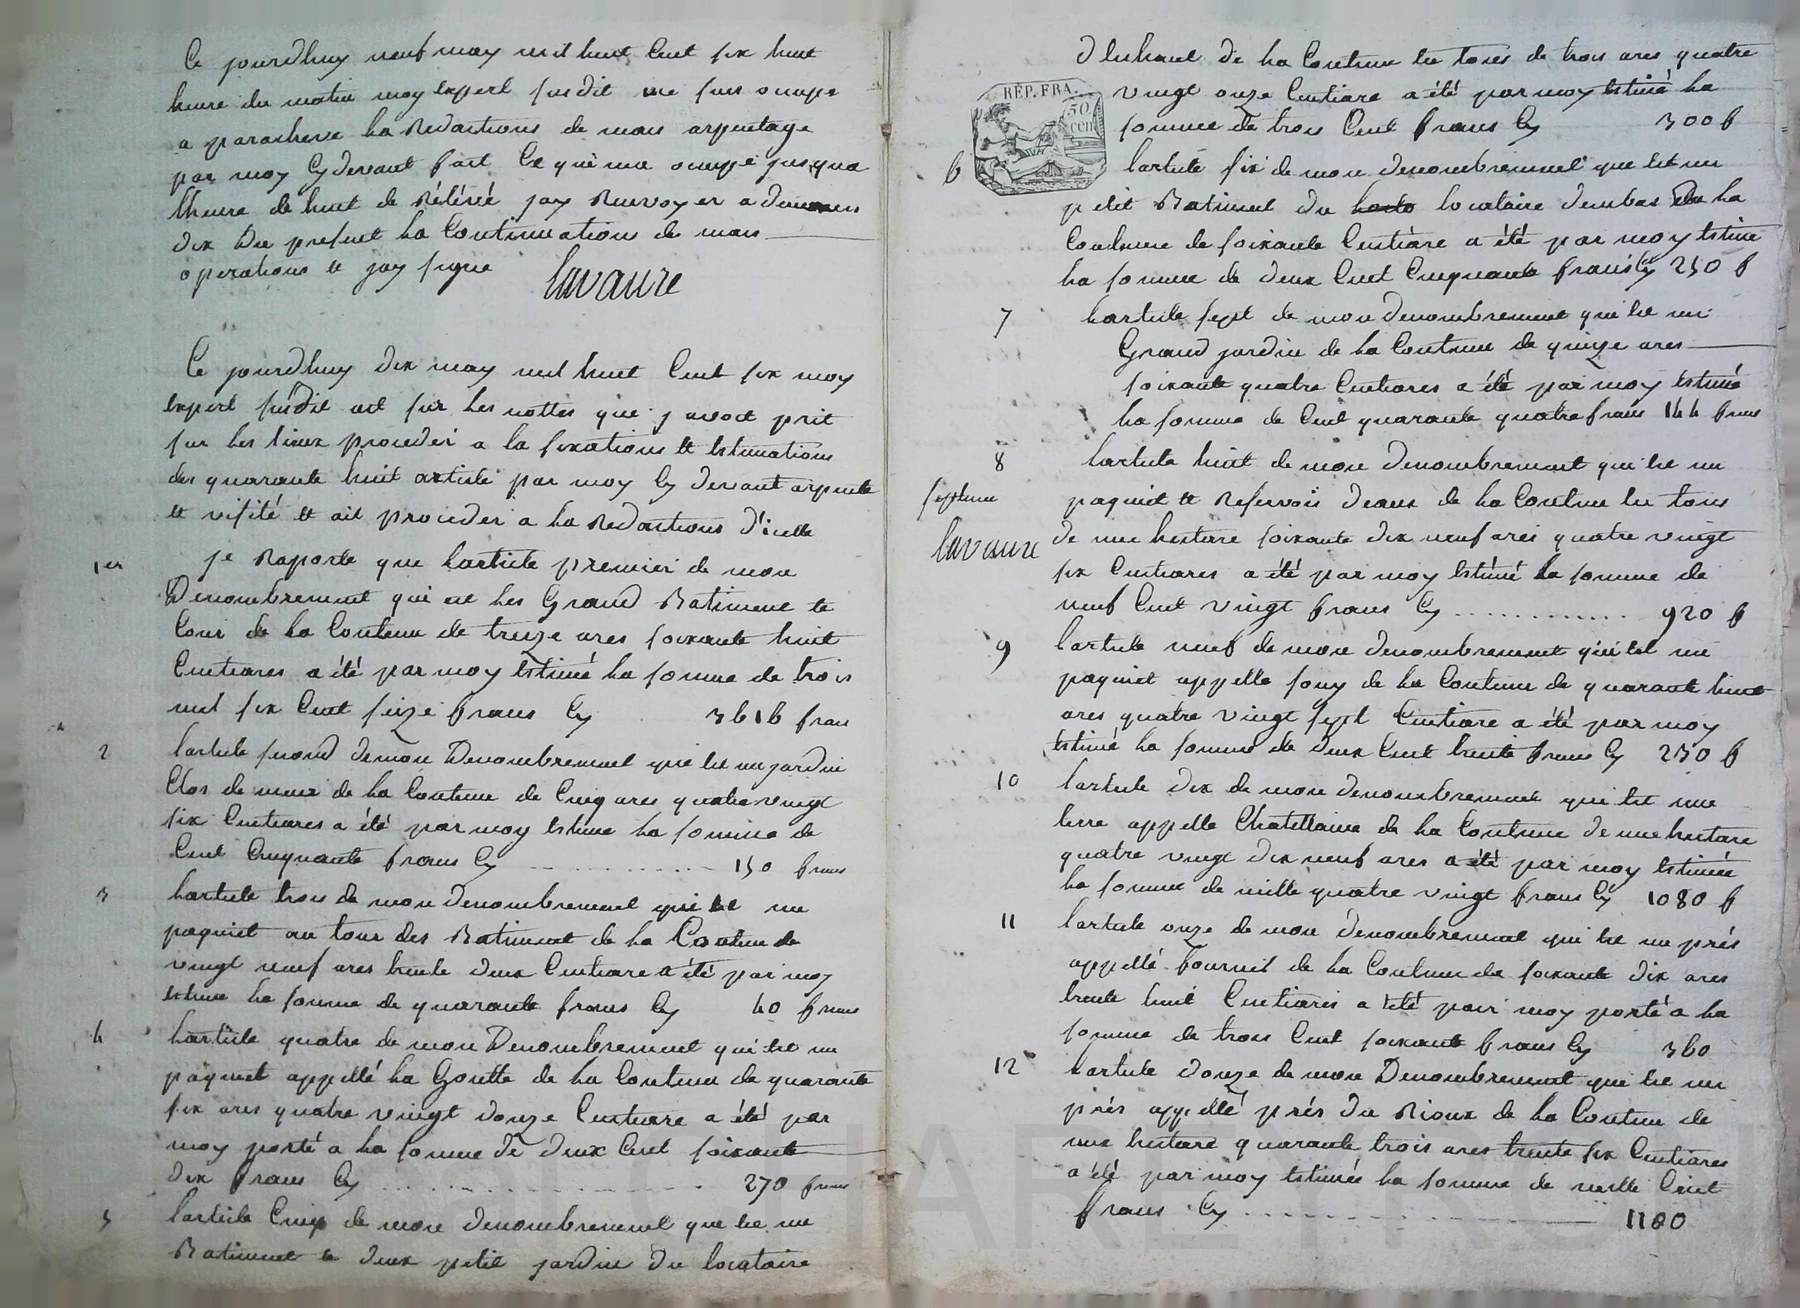 Ce jourdhuy neuf may mil huit Cent six huit
heure du matin moy expert susdit me suis occupe
a parachevé la Redactions de mon arpentage
par moy Cy devant fait Ce qui ma occupé jusqua
lheure de huit de Rélévée jay Renvoyer a demain
dix Du present la Continuations de mais
operations et jay signe
lavaure
Ce jourdhuy dix may mil huit Cent six moy
expert susdit ait sur les nottes que j avoit prit
sur les lieux proceder a la fixations et Estimations
des quarante huit article par moy Cy devant arpenté
et visité et ait proceder a la Redactions d'icelle
1er je Raporte que larticle premier de mon
Denombrement qui est les Grand Batiment et
Cour de la Contenu de treize ares soixante huit
Centiares a été par moy Estimé la somme de trois
mil six Cent seize frans Cy 3616 frans
2 larticle second de mon Denombrement qui est un jardin
Clos de murs de la Contenu de Cinq ares quatre vingt
six Centiares a été par moy Estimé la somme de
Cent Cinquante frans Cy ........... 150 frans
3 larticle trois de mon denombrement qui est un
paquiet au tour des Batiment de la Contenu de
vingt neuf ares trente deux Centiare a été par moy
estimé la somme de quarante frans Cy 40 frans
4 larticle quatre de mon Denombrement qui est un
paquiet appellé la Goutte de la Contenu de quarante
six ares quatre vingt douze Centiare a été par
moy porté a la somme de deux Cent soixante
dix frans Cy ........... 270 frans
5 larticle Cinq de mon denombrement qui est un
Batiment et deux petit jardin du locataire
REP. FRA.
50 cen
de la Contenu en tous de trois ares quatre
vingt onze Centiare a été par moy Estimé la
somme de trois Cent frans Cy 300 f
6 larticle six de mon denombrement qui est un
petit Batiment du locataire denbas de la
Contenue de soixante Centiare a été par moy Estimé
la somme de deux Cent Cinquante frans Cy 250 f
7 larticle sept de mon denombrement qui est un
Grand jardin de la Contenue de quinze ares
soixante quatre Centiares a été par moy Estimé
la somme de Cent quarante quatre frans 144 frans
8 larticle huit de mon denombrement qui est un
paquiet et Reservois deaux de la Contenu en tous
lavaure
de une hectare soixante dix neuf ares quatre vingt
six Centiares a été par moy Estimé la somme de
neuf Cent vingt frans Cy ........... 920 f
9 larticle neuf de mon denombrement qui est un
paquiet appelle sony de la Contenu de quarante huit
ares quatre vingt sept Centiare a été par moy
Estimé la somme de deux Cent trente frans Cy 230 f
10 larticle dix de mon denombrement qui est une
terre appelle Chatellaine de la Contenue de une hectare
quatre vingt dix neuf ares a été par moy Estimée
la somme de mille quatre vingt frans Cy 1080 f
11 larticle onze de mon denombrement qui est un prés
appellé fournil de la Contenu de soixante dix ares
trente huit Centiares a été par moy porté a la
somme de trois Cent soixante frans Cy 360
12 larticle douze de mon Denombrement qui est un
prés appellé prés du Rioux de la Contenu de
une hectare quarante trois ares trente six Centiares
a été par moy Estimée la somme de mille Cent
frans Cy ........... 1100